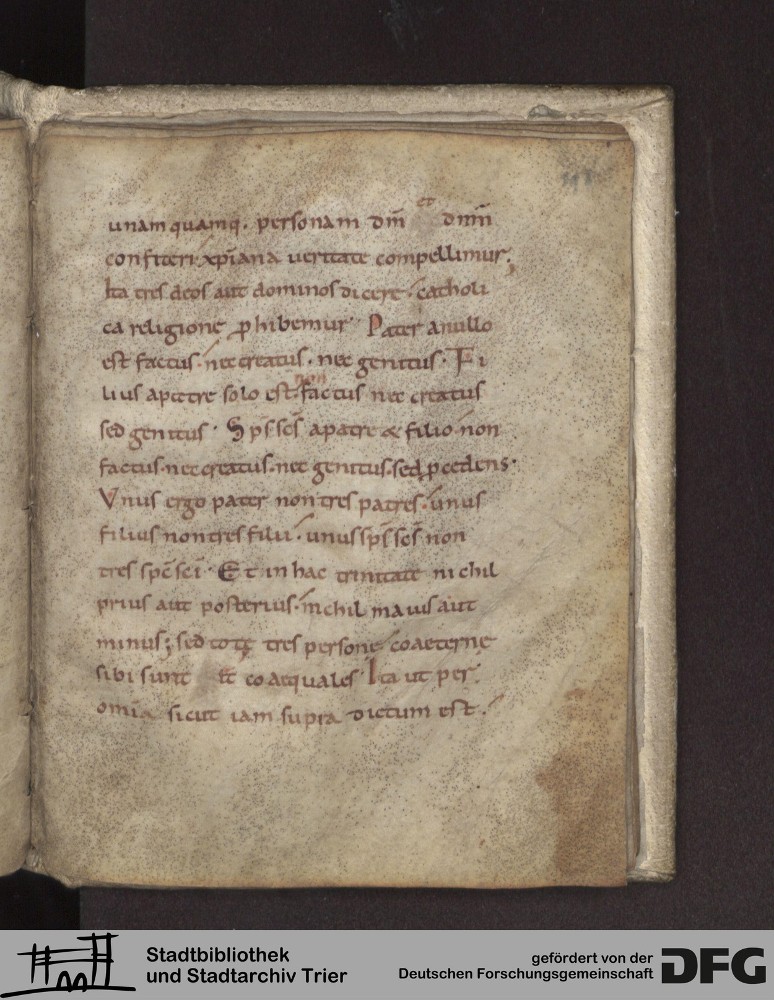 et
unam quamq. personam dm̄ dnm̄
confiteri xp̄iana ueritate compellimur;
Ita tres deos aut dominos dicere catholi
ca religione ꝓhibemur. Pater a nullo
est factus. nec creatus. nec genitus. Fi
non
lius a patre solo est. factus nec creatus
sed genitus. Sp̄s. sc̄s a patre & filio non
factus. nec creatus. nec genitus. sed ꝓcedens.
Vnus ergo pater non tres patres. unus
filius non tres filii. unus sp̄s sc̄s non
tres sp̄c sc̄i. Et in hac trinitate nichil
prius aut posterius. nichil maius aut
minus; sed totę tres personę coaeternę
sibi sunt Et coaequales. Ita ut per
om̄ia sicut iam supra dictum est.
Stadtbibliothek
und Stadtarchiv Trier
gefördert von der
Deutschen Forschungsgemeinschaft
DFG